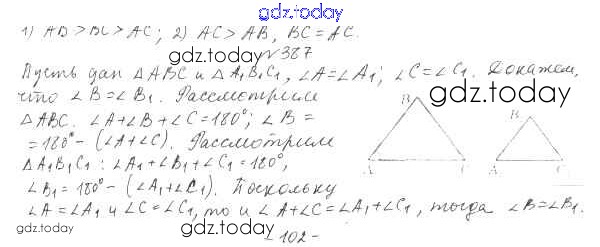 gdz.today
1) AB > BC > AC; 2) AC > AB, BC = AC.
gdz.today
№ 387
Пусть дан △ABC и △A₁B₁C₁, ∠A=∠A₁; ∠C=∠C₁. Докажем,
что ∠B=∠B₁. Рассмотрим
gdz.today
△ABC. ∠A+∠B+∠C=180°; ∠B =
= 180° - (∠A+∠C). Рассмотрим
△A₁B₁C₁: ∠A₁+∠B₁+∠C₁=180°,
∠B₁= 180° - (∠A₁+∠C₁). Поскольку
∠A=∠A₁ и ∠C=∠C₁, то и ∠A+∠C=∠A₁+∠C₁, тогда ∠B=∠B₁.
B
B₁
A
C
A₁
C₁
gdz.today
gdz.today
- 102 -